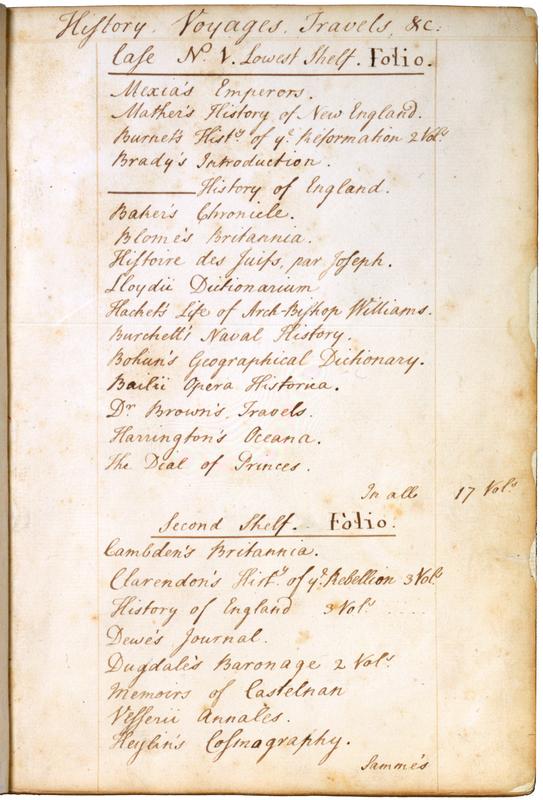 History, Voyages, Travels, &c:
Case No. V. Lowest Shelf. Folio.
Mexia's Emperors.
Mather's History of New England.
Burnet's Histy of ye Reformation 2 Vols
Brady's Introduction.
——— History of England.
Baker's Chronicle.
Blome's Britannia.
Histoire des Juifs, par Joseph.
Lloydii Dictionarium
Hacket's Life of Arch-Bishop Williams.
Burchett's Naval History.
Bohun's Geographical Dictionary.
Bailii Opera Historica.
Dr Brown's Travels.
Harrington's Oceana.
The Dial of Princes.
In all 17 Vols
Second Shelf. Folio.
Cambden's Britannia.
Clarendon's Histy of ye Rebellion 3 Vols
History of England 3 Vols .....
Dewe's Journal.
Dugdale's Baronage 2 Vols
Memoirs of Castelnan
Vsserii Annales.
Heylin's Cosmography.
Samme's